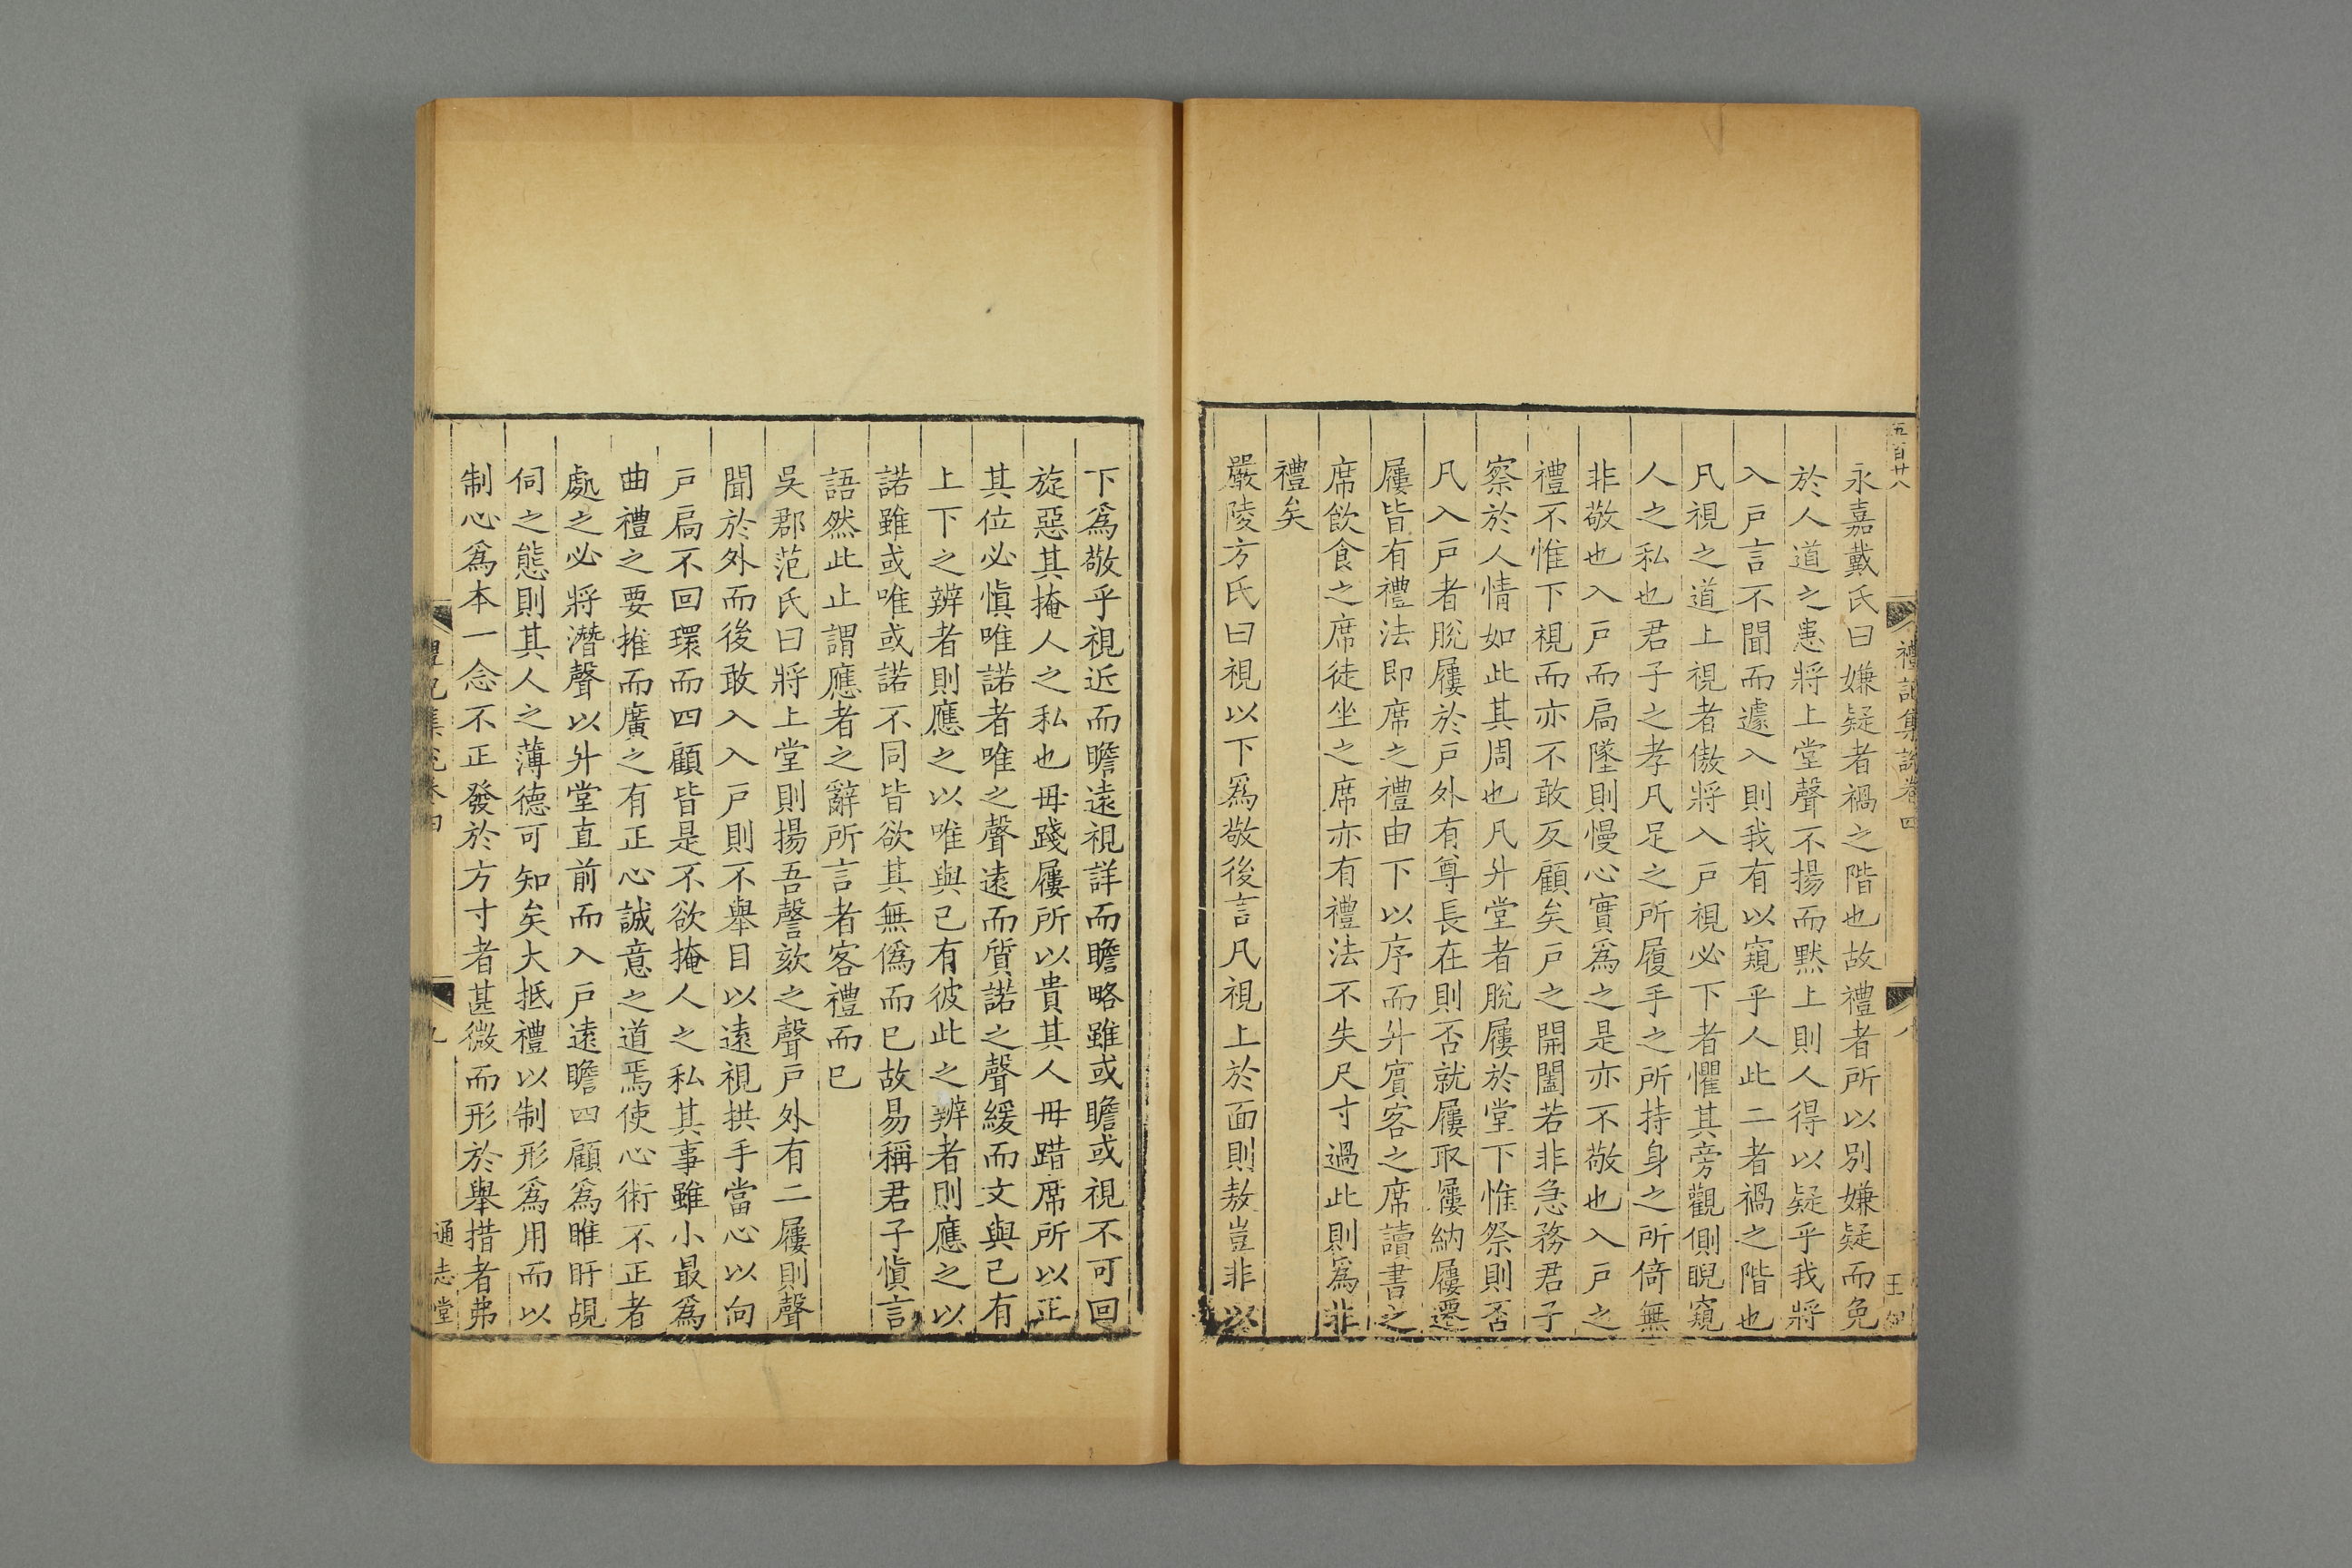 五百廿八
禮記集説卷四
八
永嘉戴氏曰嫌疑者禍之階也故禮者所以别嫌疑而免
於人道之患將上堂聲不揚而黙上則人得以疑乎我將
入戸言不聞而遽入則我有以窺乎人此二者禍之階也
凡視之道上視者傲將入戸視必下者懼其旁觀側睨窺
人之私也君子之孝凡足之所履手之所持身之所倚無
非敬也入戸而扃墜則慢心實爲之是亦不敬也入戸之
禮不惟下視而亦不敢反顧矣戸之開闔若非急務君子
察於人情如此其周也凡升堂者脫屨於堂下惟祭則否
凡入戸者脫屨於戸外有尊長在則否就屨取屨納屨遷
屨皆有禮法即席之禮由下以序而升賓客之席讀書之
席飲食之席徒坐之席亦有禮法不失尺寸過此則爲非
禮矣
嚴陵方氏曰視以下爲敬後言凡視上於面則敖豈非以
下爲敬乎視近而瞻遠視詳而瞻略雖或瞻或視不可回
旋惡其掩人之私也毋踐屨所以貴其人毋踖席所以正
其位必愼唯諾者唯之聲遠而質諾之聲緩而文與己有
上下之辨者則應之以唯與己有彼此之辨者則應之以
諾雖或唯或諾不同皆欲其無僞而已故易稱君子愼言
語然此止謂應者之辭所言者客禮而已
吳郡范氏曰將上堂則揚吾謦欬之聲戸外有二屨則聲
聞於外而後敢入入戸則不舉目以遠視拱手當心以向
戸扃不回環而四顧皆是不欲掩人之私其事雖小最爲
曲禮之要推而廣之有正心誠意之道焉使心術不正者
處之必將潛聲以升堂直前而入戸遠瞻四顧爲睢盱覘
伺之態則其人之薄德可知矣大抵禮以制形爲用而以
制心爲本一念不正發於方寸者甚微而形於舉措者弗
禮記集説卷四
九
通志堂